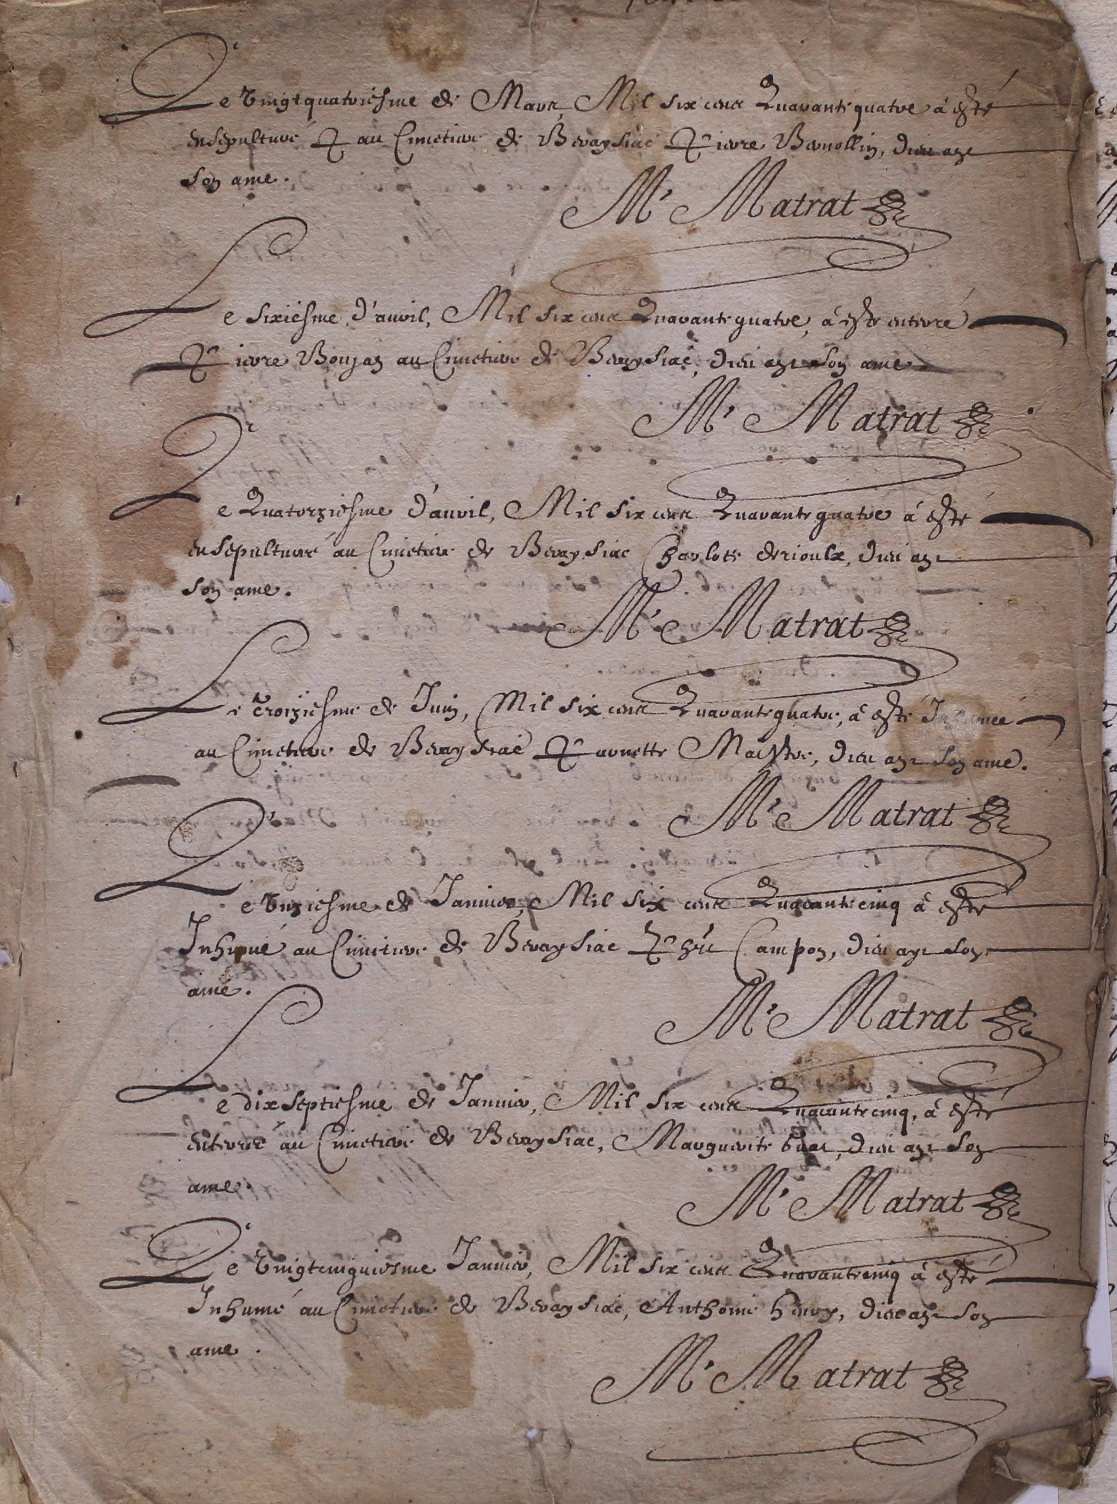 Le vingtquatriesme de Mars Mil six cens Quarante quatre à esté
ensepulturé au Cimetiere de Beraysiac Pierre Bernollin, dieu aye
son ame.
Mr Matrat
Le sixiesme d'avril, Mil six cens Quarante quatre, à esté enterré
Pierre Boujas au Cimetiere de Beraysiac, dieu aye son ame
Mr Matrat
Le Quatorziesme d'avril, Mil six cens Quarante quatre à esté
ensepulturé au Cimetiere de Beraysiac Charlotte derioulx, dieu aye
son ame.
Mr Matrat
Le troiziesme de Juin, Mil six cens Quarante quatre, à esté Inhumee
au Cimetiere de Beraysiac Pernette Maistre, dieu aye son ame.
Mr Matrat
Le unziesme de Janvier, Mil six cens Quarante cinq à esté
Inhumé au Cimetiere de Beraysiac Campon, dieu aye son
ame.
Mr Matrat
Le dixseptiesme de Janvier, Mil six cens Quarante cinq, à esté
enterré au Cimetiere de Beraysiac, Marguerite dieu aye son
ame.
Mr Matrat
Le vingtcinquiesme Janvier, Mil six cens Quarante cinq à esté
Inhumé au Cimetiere de Beraysiac, Anthoine henry, dieu aye son
ame.
Mr Matrat